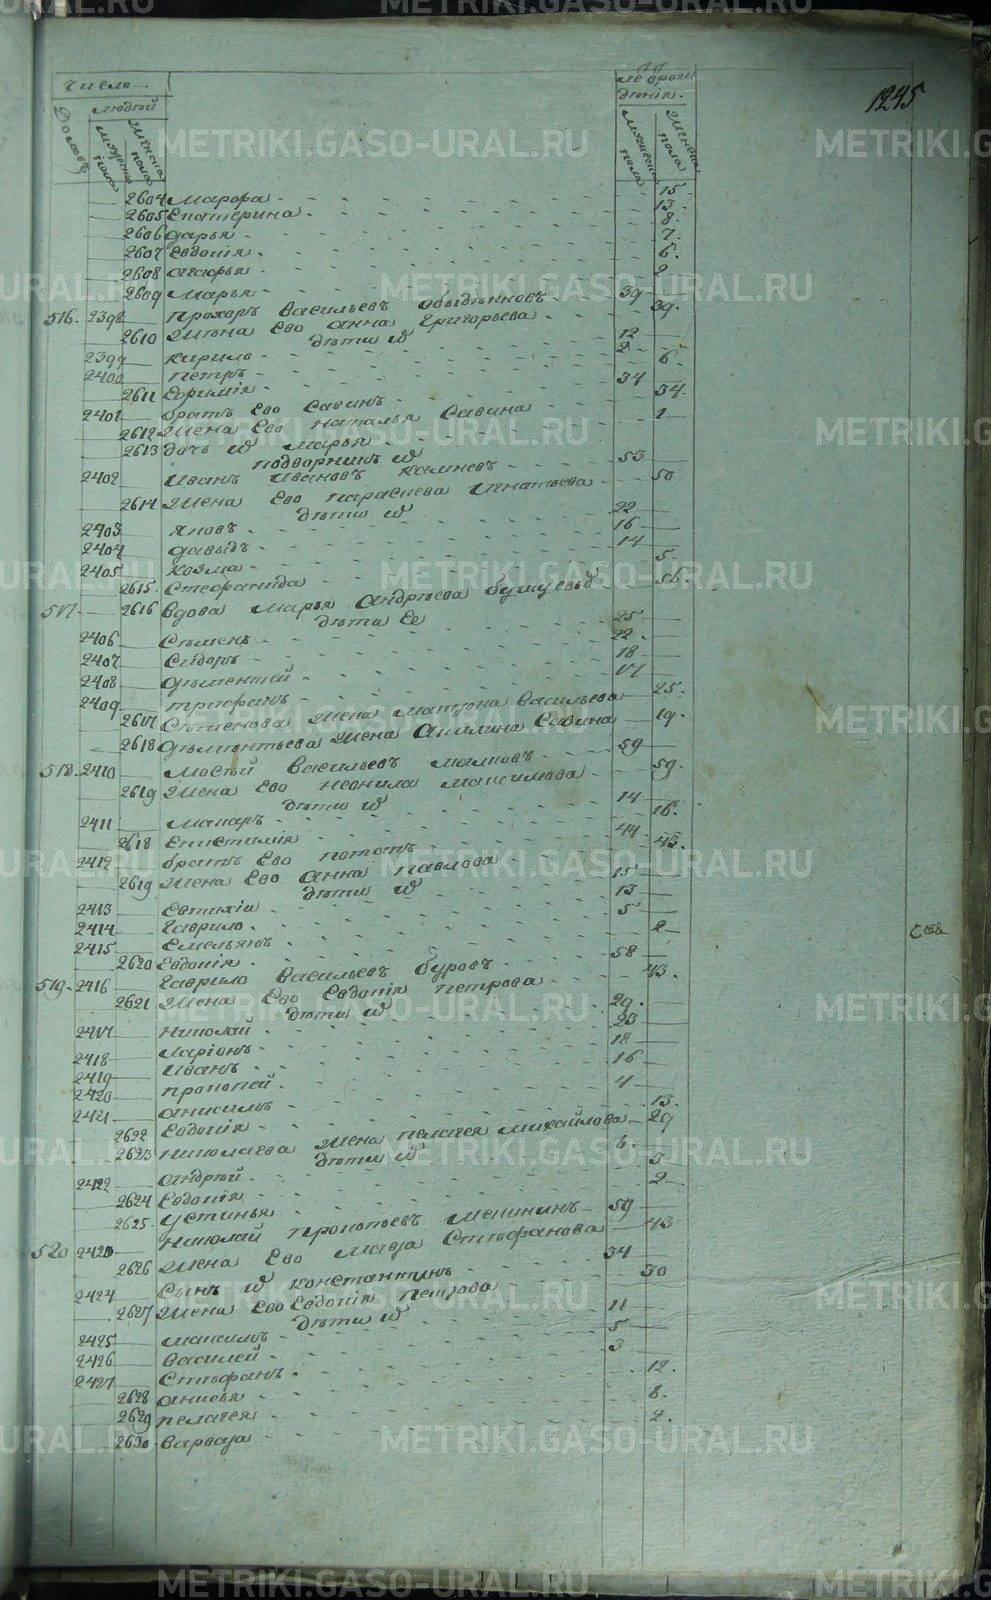 1245
Число
людей
Домовъ
мужеска пола
женска пола
мужеска пола
женска пола
2604 Марфа 15
2605 Екатерина 13
2606 Дарья 8
2607 Евдокія 7
2608 6
2609 Марья 2
516 2398 Прохоръ Васильевъ 39
2610 Жена Ево Анна Григорьева 39
дѣти
2399 Кирило 12
2400 Петръ 2
2611 Ефимія 6
2401 братъ Ево Савинъ 34
2612 Жена Ево Наталья Савина 34
2613 дочь Марья 1
подворникъ
2402 Иванъ Ивановъ 53
2614 Жена Ево Параскева Игнатьева 50
дѣти
2403 Яковъ 22
2404 Давыдъ 16
2405 Козма 14
2615 Стефанида 5
517 2616 Вдова Марья Андрѣева 56
дѣти Ее
2406 Сѣменъ 25
2407 Сидоръ 22
2408 Дѣментей 18
2409 Трифанъ 17
2617 Сѣменова Жена Матрона Васильева 25
2618 Дѣментьева Жена Акилина Савина 19
518 2410 Мосѣй Васильевъ 59
2619 Жена Ево Неонила Максимова 59
дѣти
2411 Макаръ 14
2618 Епистимія 16
2412 братъ Ево Потапъ 44
2619 Жена Ево Анна Павлова 43
дѣти
2413 Евтихій 15
2414 Гаврило 13
2415 Емельянъ 5
2620 Евдокія 2
519 2416 Гаврило Васильевъ Буровъ 58
2621 Жена Ево Евдокія Петрова 43
дѣти
2417 Николай 29
2418 Ларіонъ 23
2419 Иванъ 18
2420 Прокопей 16
2421 Анисимъ 4
2622 Евдокія 13
2623 Николаева Жена Пелагея Михайлова 29
дѣти
2422 Андрей 6
2624 Евдокія 3
2625 Устинья 2
520 2423 Николай Прокопьевъ 59
2626 Жена Ево Мавра Стефанова 43
2424 Сынъ Константинъ 34
2627 Жена Ево Евдокія Петрова 30
дѣти
2425 Максимъ 11
2426 Василей 5
2427 Стефанъ 3
2628 Анисья 12
2629 Пелагея 8
2630 Варвара 2
METRIKI.GASO-URAL.RU